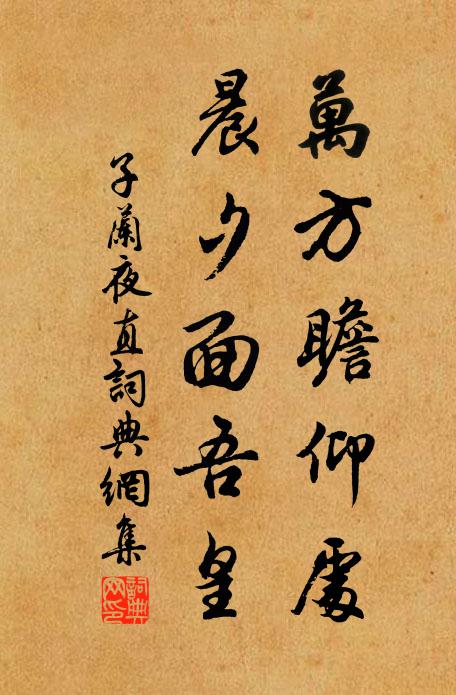 萬方瞻仰處
晨夕面吾皇
子蘭夜直詞典網集
詞典網印